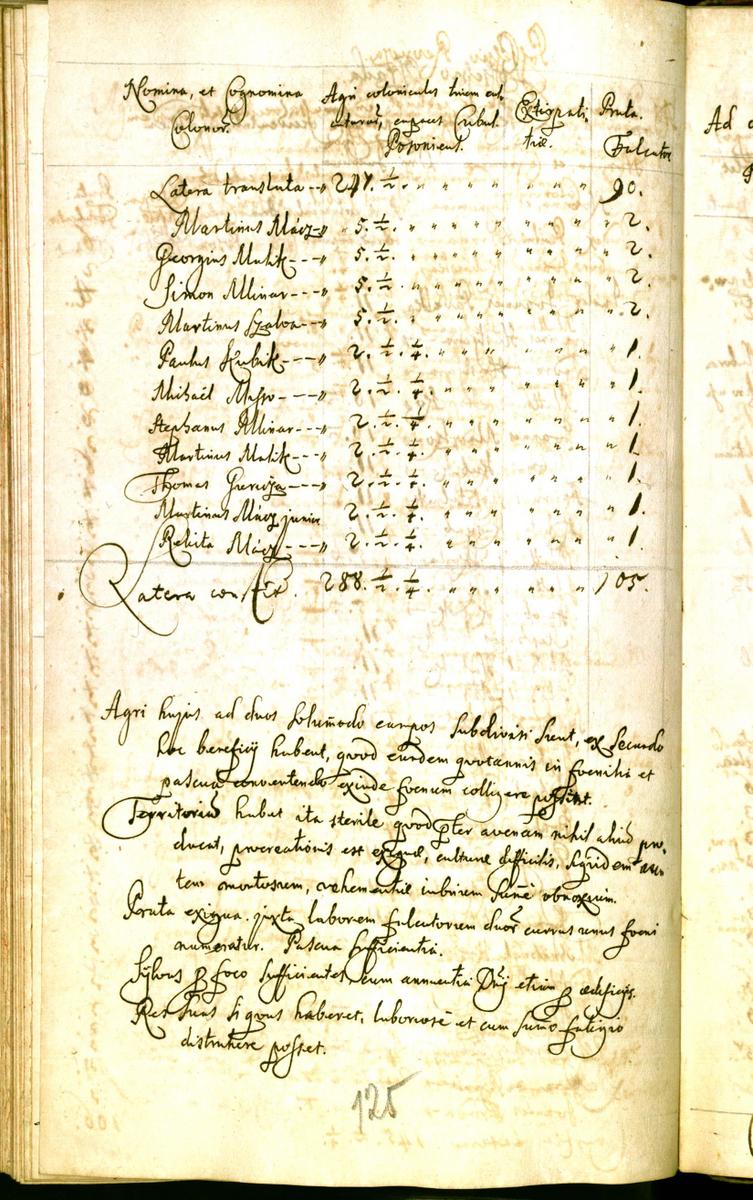 Nomina, et Cognomina Colonor̃.
Agri coloniculis trium cul- turarũ, capaces Cubul. Posonient.
Extirpati- tiæ.
Prata. Falcator
Latera translata --- 247. ½. 90.
Martinus Mácz -- 5. ½. 2.
Georgius Malik --- 5. ½. 2.
Simon Mlinar --- 5. ½. 2.
Martinus Szaloa --- 5. ½. 2.
Paulus Kubik --- 2. ½. ¼. 1.
Michaël --- 2. ½. ¼. 1.
Stephanus Mlinar --- 2. ½. ¼. 1.
Martinus Malik --- 2. ½. ¼. 1.
Thomas --- 2. ½. ¼. 1.
Martinus Mácz junior 2. ½. ¼. 1.
Relicta Mácz --- 2. ½. ¼. 1.
Latera 288. ½. ¼. 105.
Agri hujus ad duos solum̃odo campos subdivisi sunt, ex secundo
hoc beneficij habent, quod eundem quotannis in foenilia et
pascua convertendo exinde foenum colligere possint.
Territoriũ habet ita sterile quod p̃ter avenam nihil aliud pro-
ducat, procreationis est exiguæ, culturæ difficilis, siquidem
montosum, vehementiæ imbrium sum̃e obnoxium.
Prata exigua. juxta laborem falcatorum duor̃ currus unus foeni
numeratur. Pascua sufficientia.
Sylvas p foco sufficientes, cum annuentia Dnj etiam p ædificijs.
Res suas si quas haberet, laboriosè et cum sum̃o fatigio
distrahere posset.
125
Ad